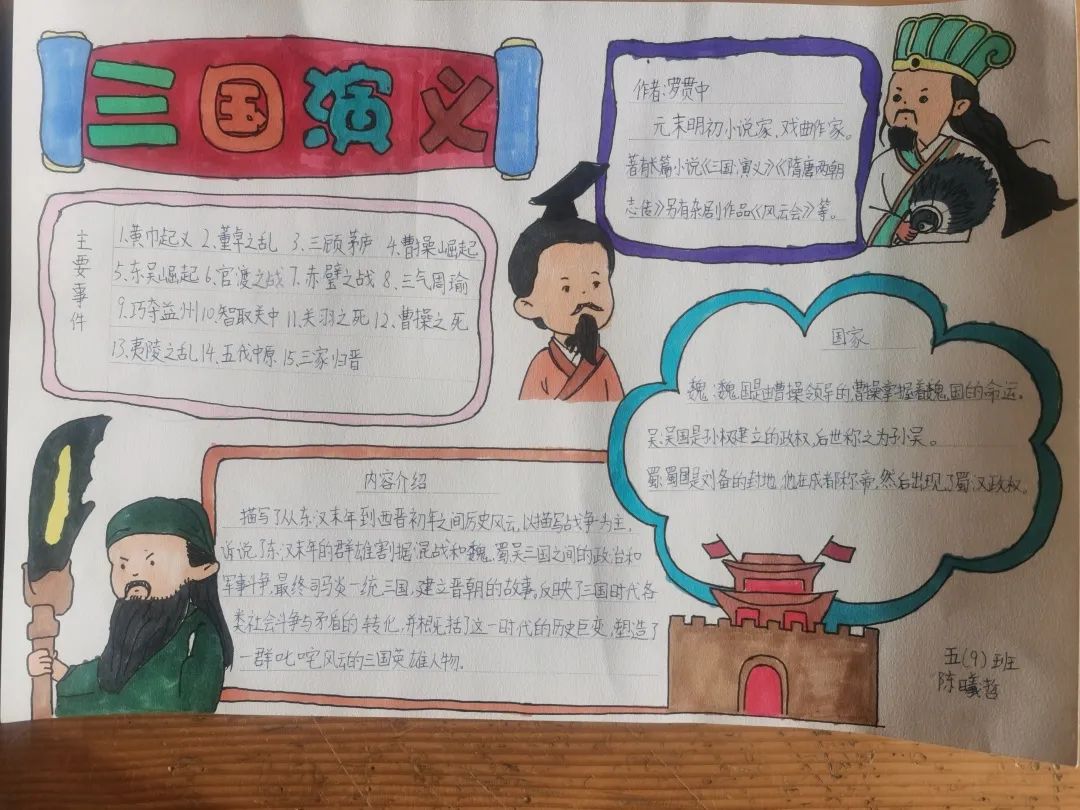 三国演义
作者:罗贯中
元末明初小说家、戏曲作家。
著有长篇小说《三国演义》《隋唐两朝
志传》另有杂剧作品《风云会》等。
主要事件
1.黄巾起义 2.董卓之乱 3.三顾茅庐 4.曹操崛起
5.东吴崛起 6.官渡之战 7.赤壁之战 8.三气周瑜
9.巧夺益州 10.智取关中 11.关羽之死 12.曹操之死
13.夷陵之乱 14.五伐中原 15.三家归晋
国家
魏:魏国是由曹操领导的,曹操掌握着魏国的命运。
吴:吴国是孙权建立的政权,后世称之为孙吴。
蜀:蜀国是刘备的封地,他在成都称帝,然后出现了蜀汉政权。
内容介绍
描写了从东汉末年到西晋初年之间历史风云,以描写战争为主,
诉说了东汉末年的群雄割据混战和魏、蜀吴三国之间的政治和
军事斗争,最终司马炎一统三国,建立晋朝的故事。反映了三国时代各
类社会斗争与矛盾的转化,并概括了这一时代的历史巨变,塑造了
一群叱咤风云的三国英雄人物。
五(9)班
陈曦哲